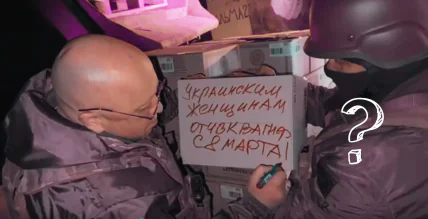 УКРАИНСКИМ
ЖЕНЩИНАМ
ОТ ЧВК ВАГНЕР
С 8 МАРТА!
?